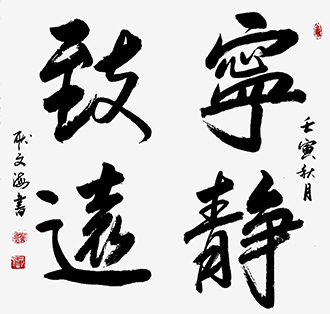 壬寅秋月
寧静
致遠
耿文海書